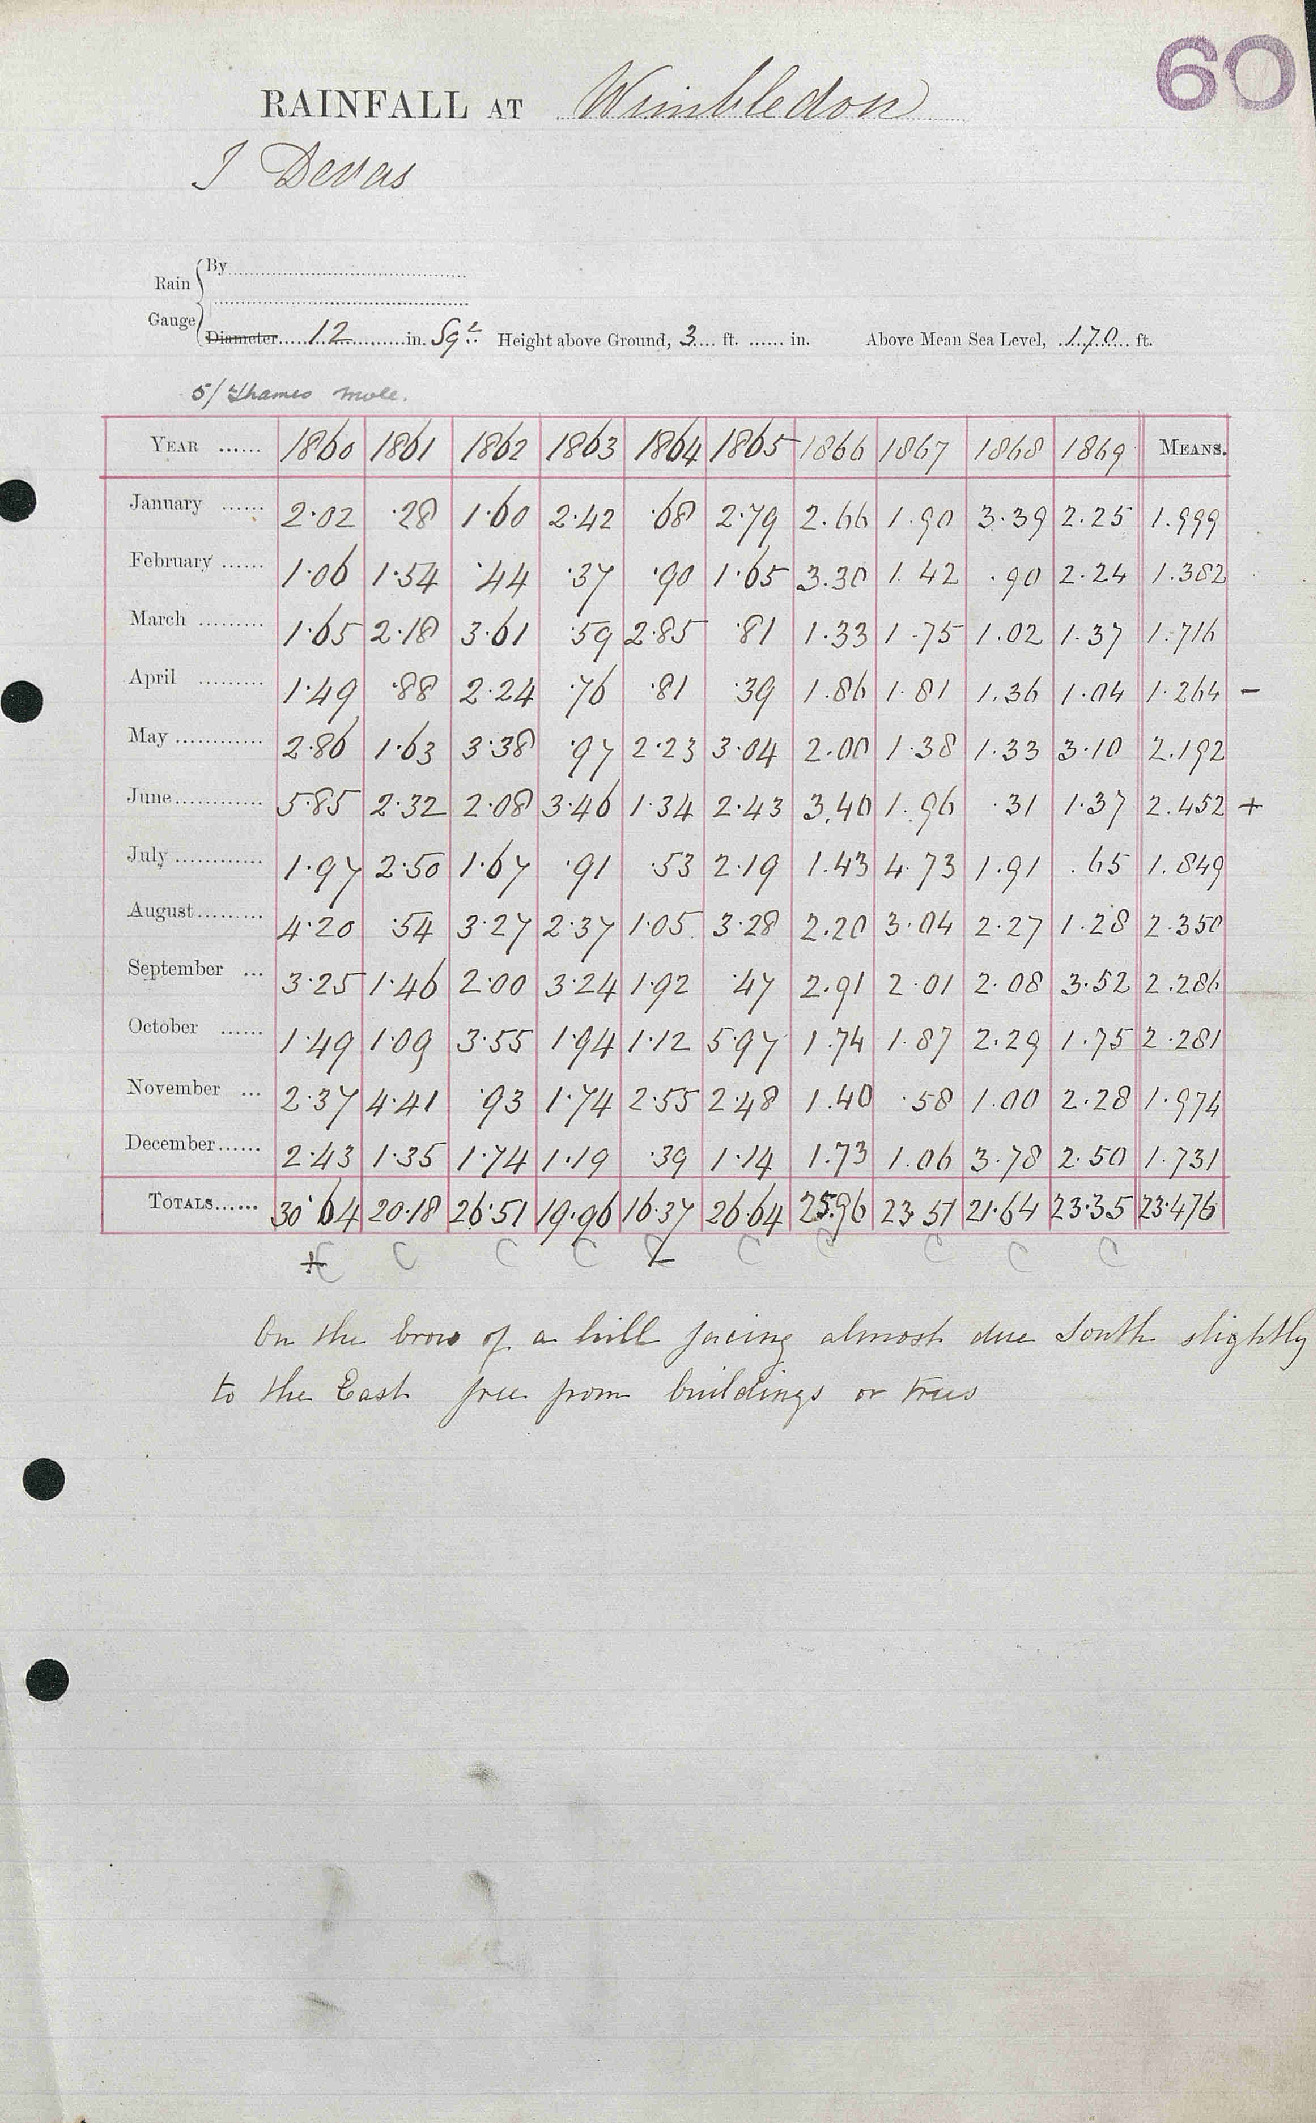 60
RAINFALL AT Wimbledon
J Devas
Rain Gauge
By
Diameter 12 in. Sqr Height above Ground, 3 ft. in. Above Mean Sea Level, 170 ft.
5/ Thames Mole.
YEAR 1860 1861 1862 1863 1864 1865 1866 1867 1868 1869 MEANS.
January 2.02 .28 1.60 2.42 .68 2.79 2.66 1.90 3.39 2.25 1.999
February 1.06 1.54 .44 .37 .90 1.65 3.30 1.42 .90 2.24 1.382
March 1.65 2.18 3.61 .59 2.85 .81 1.33 1.75 1.02 1.37 1.716
April 1.49 .88 2.24 .76 .81 .39 1.86 1.81 1.36 1.04 1.264 -
May 2.86 1.63 3.38 .97 2.23 3.04 2.00 1.38 1.33 3.10 2.192
June 5.85 2.32 2.08 3.46 1.34 2.43 3.40 1.96 .31 1.37 2.452 +
July 1.97 2.50 1.67 .91 .53 2.19 1.43 4.73 1.91 .65 1.849
August 4.20 .54 3.27 2.37 1.05 3.28 2.20 3.04 2.27 1.28 2.350
September 3.25 1.46 2.00 3.24 1.92 .47 2.91 2.01 2.08 3.52 2.286
October 1.49 1.09 3.55 1.94 1.12 5.97 1.74 1.87 2.29 1.75 2.281
November 2.37 4.41 .93 1.74 2.55 2.48 1.40 .58 1.00 2.28 1.974
December 2.43 1.35 1.74 1.19 .39 1.14 1.73 1.06 3.78 2.50 1.731
TOTALS 30.64 20.18 26.51 19.96 16.37 26.64 25.96 23.51 21.64 23.35 23.476
+ C C C C - C C C C C
On the brow of a hill facing almost due South slightly
to the East free from buildings or trees